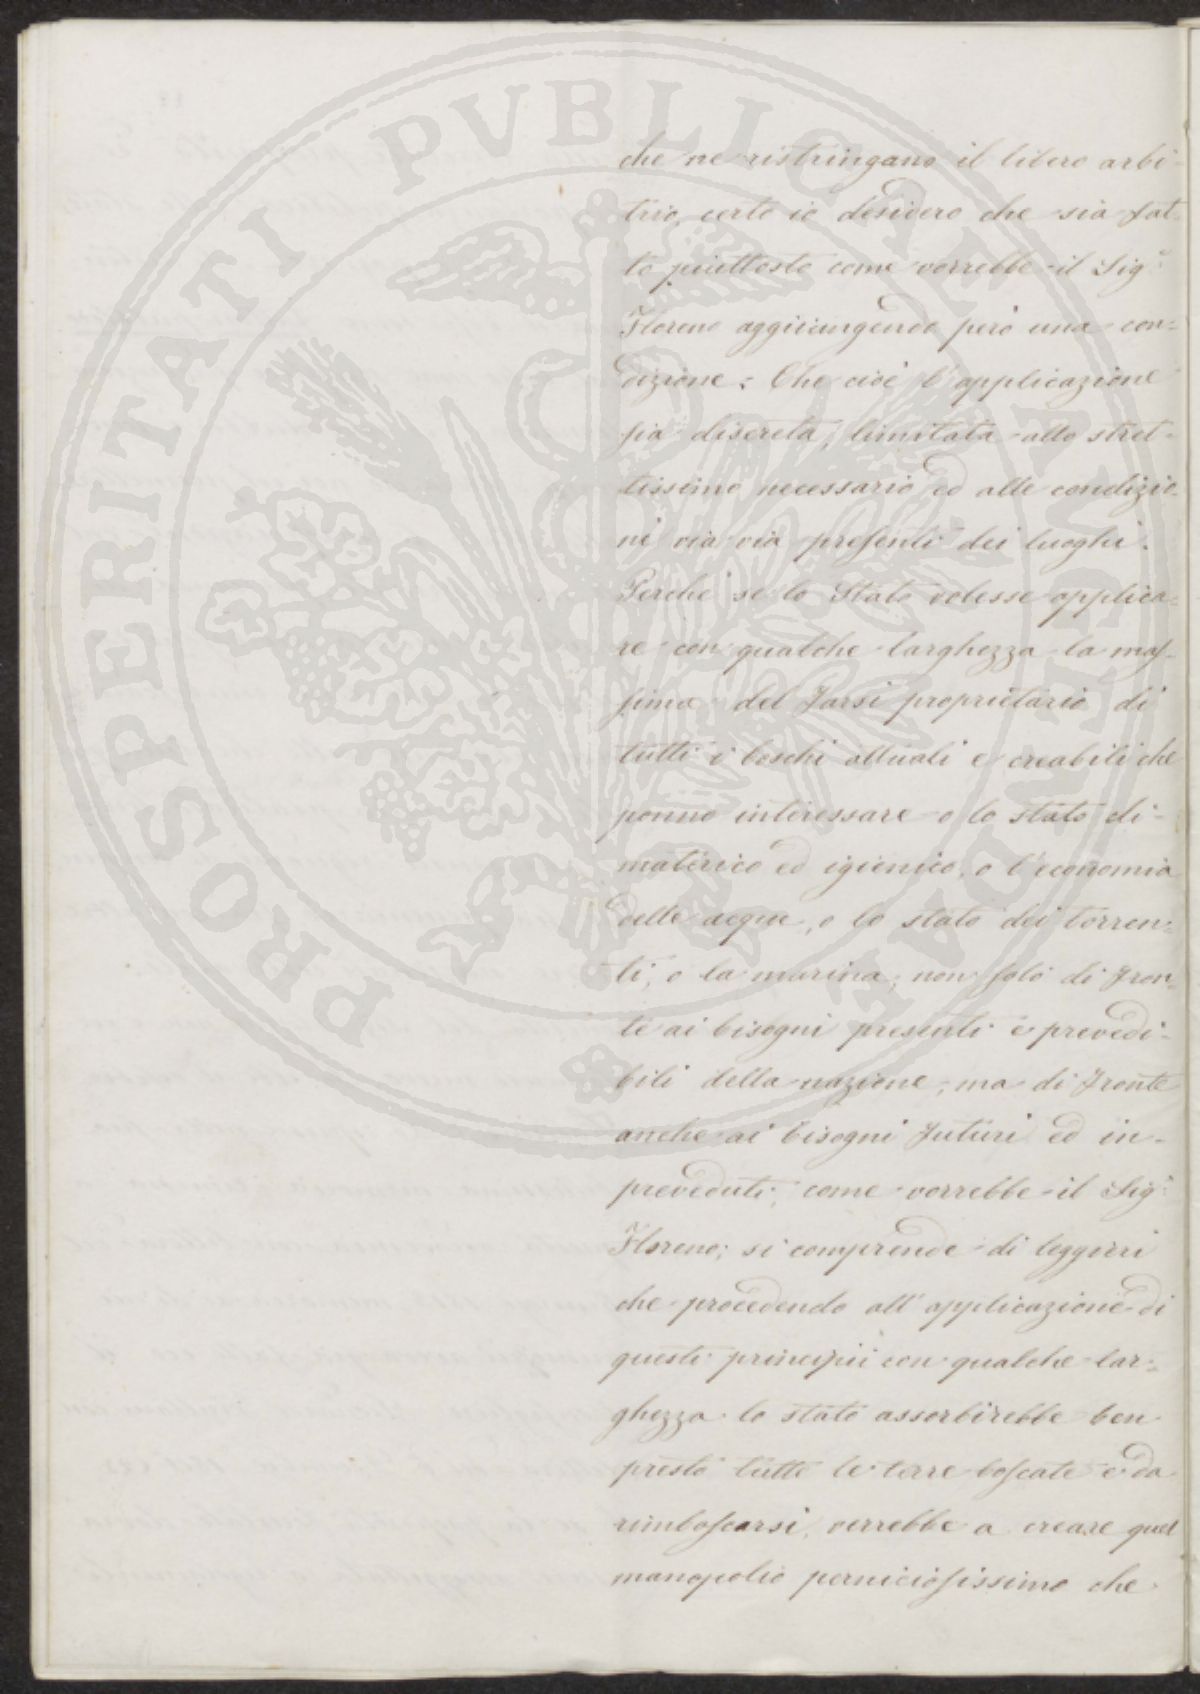 PROSPERITATI PVBLICAE AVGENDAE
che ne ristringano il libero arbi-
trio, certo io desidero che sia fat-
to piuttosto come vorrebbe il Sigr.
Floreno aggiungendo però una con=
dizione: Che cioè l'applicazione
sia discreta, limitata allo stret-
tissimo necessario ed alle condizio-
ni via via presenti dei luoghi.
Perchè se lo Stato volesse applica-
re con qualche larghezza la mas-
sima del farsi proprietario di
tutti i boschi attuali e creabili che
ponno interessare o lo stato cli-
materico ed igienico, o l'economia
delle acque, o lo stato dei torren-
ti, o la marina; non solo di fron-
te ai bisogni presenti e prevedi-
bili della nazione, ma di fronte
anche ai bisogni futuri ed in-
preveduti, come vorrebbe il Sigr.
Floreno; si comprende di leggieri
che procedendo all'applicazione di
questi principii con qualche lar-
ghezza lo stato assorbirebbe ben
presto tutte le terre boscate e da
rimboscarsi, verrebbe a creare quel
manopolio perniciosissimo che